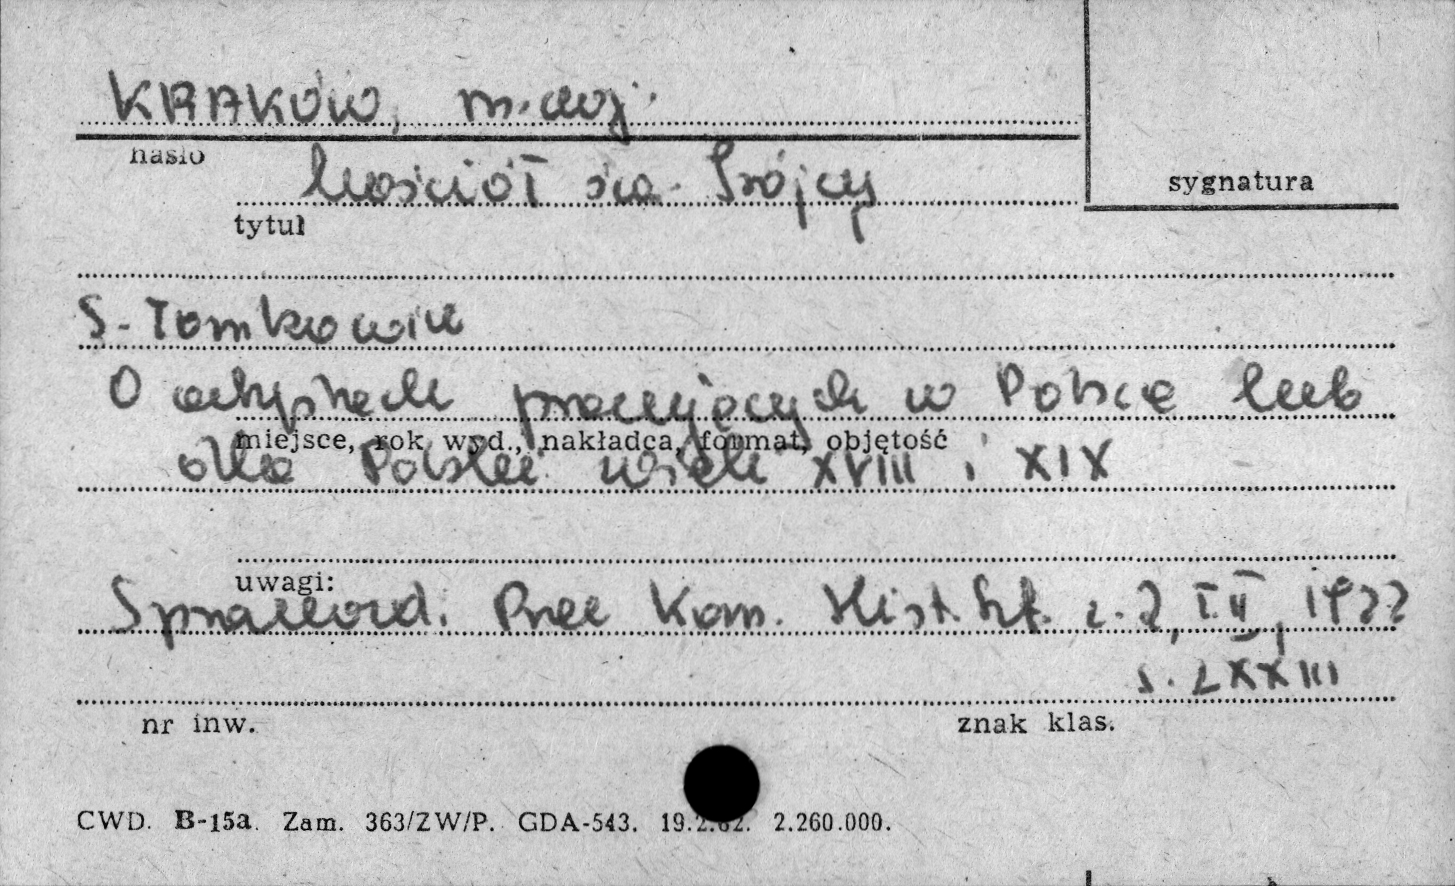 KRAKÓW, m. woj.
hasło
kościół św. Trójcy
sygnatura
tytuł
S. Tomkowicz
O artystach pracujących w Polsce lub
miejsce, rok wyd., nakładca, format, objętość
dla Polski wiek XVIII i XIX
uwagi:
Sprawozd. Prac Kom. Hist. Szt. z. 2, T. II, 1922
s. LXXIII
nr inw.
znak klas.
CWD. B-15a. Zam. 363/ZW/P. GDA-543. 19.2.82. 2.260.000.